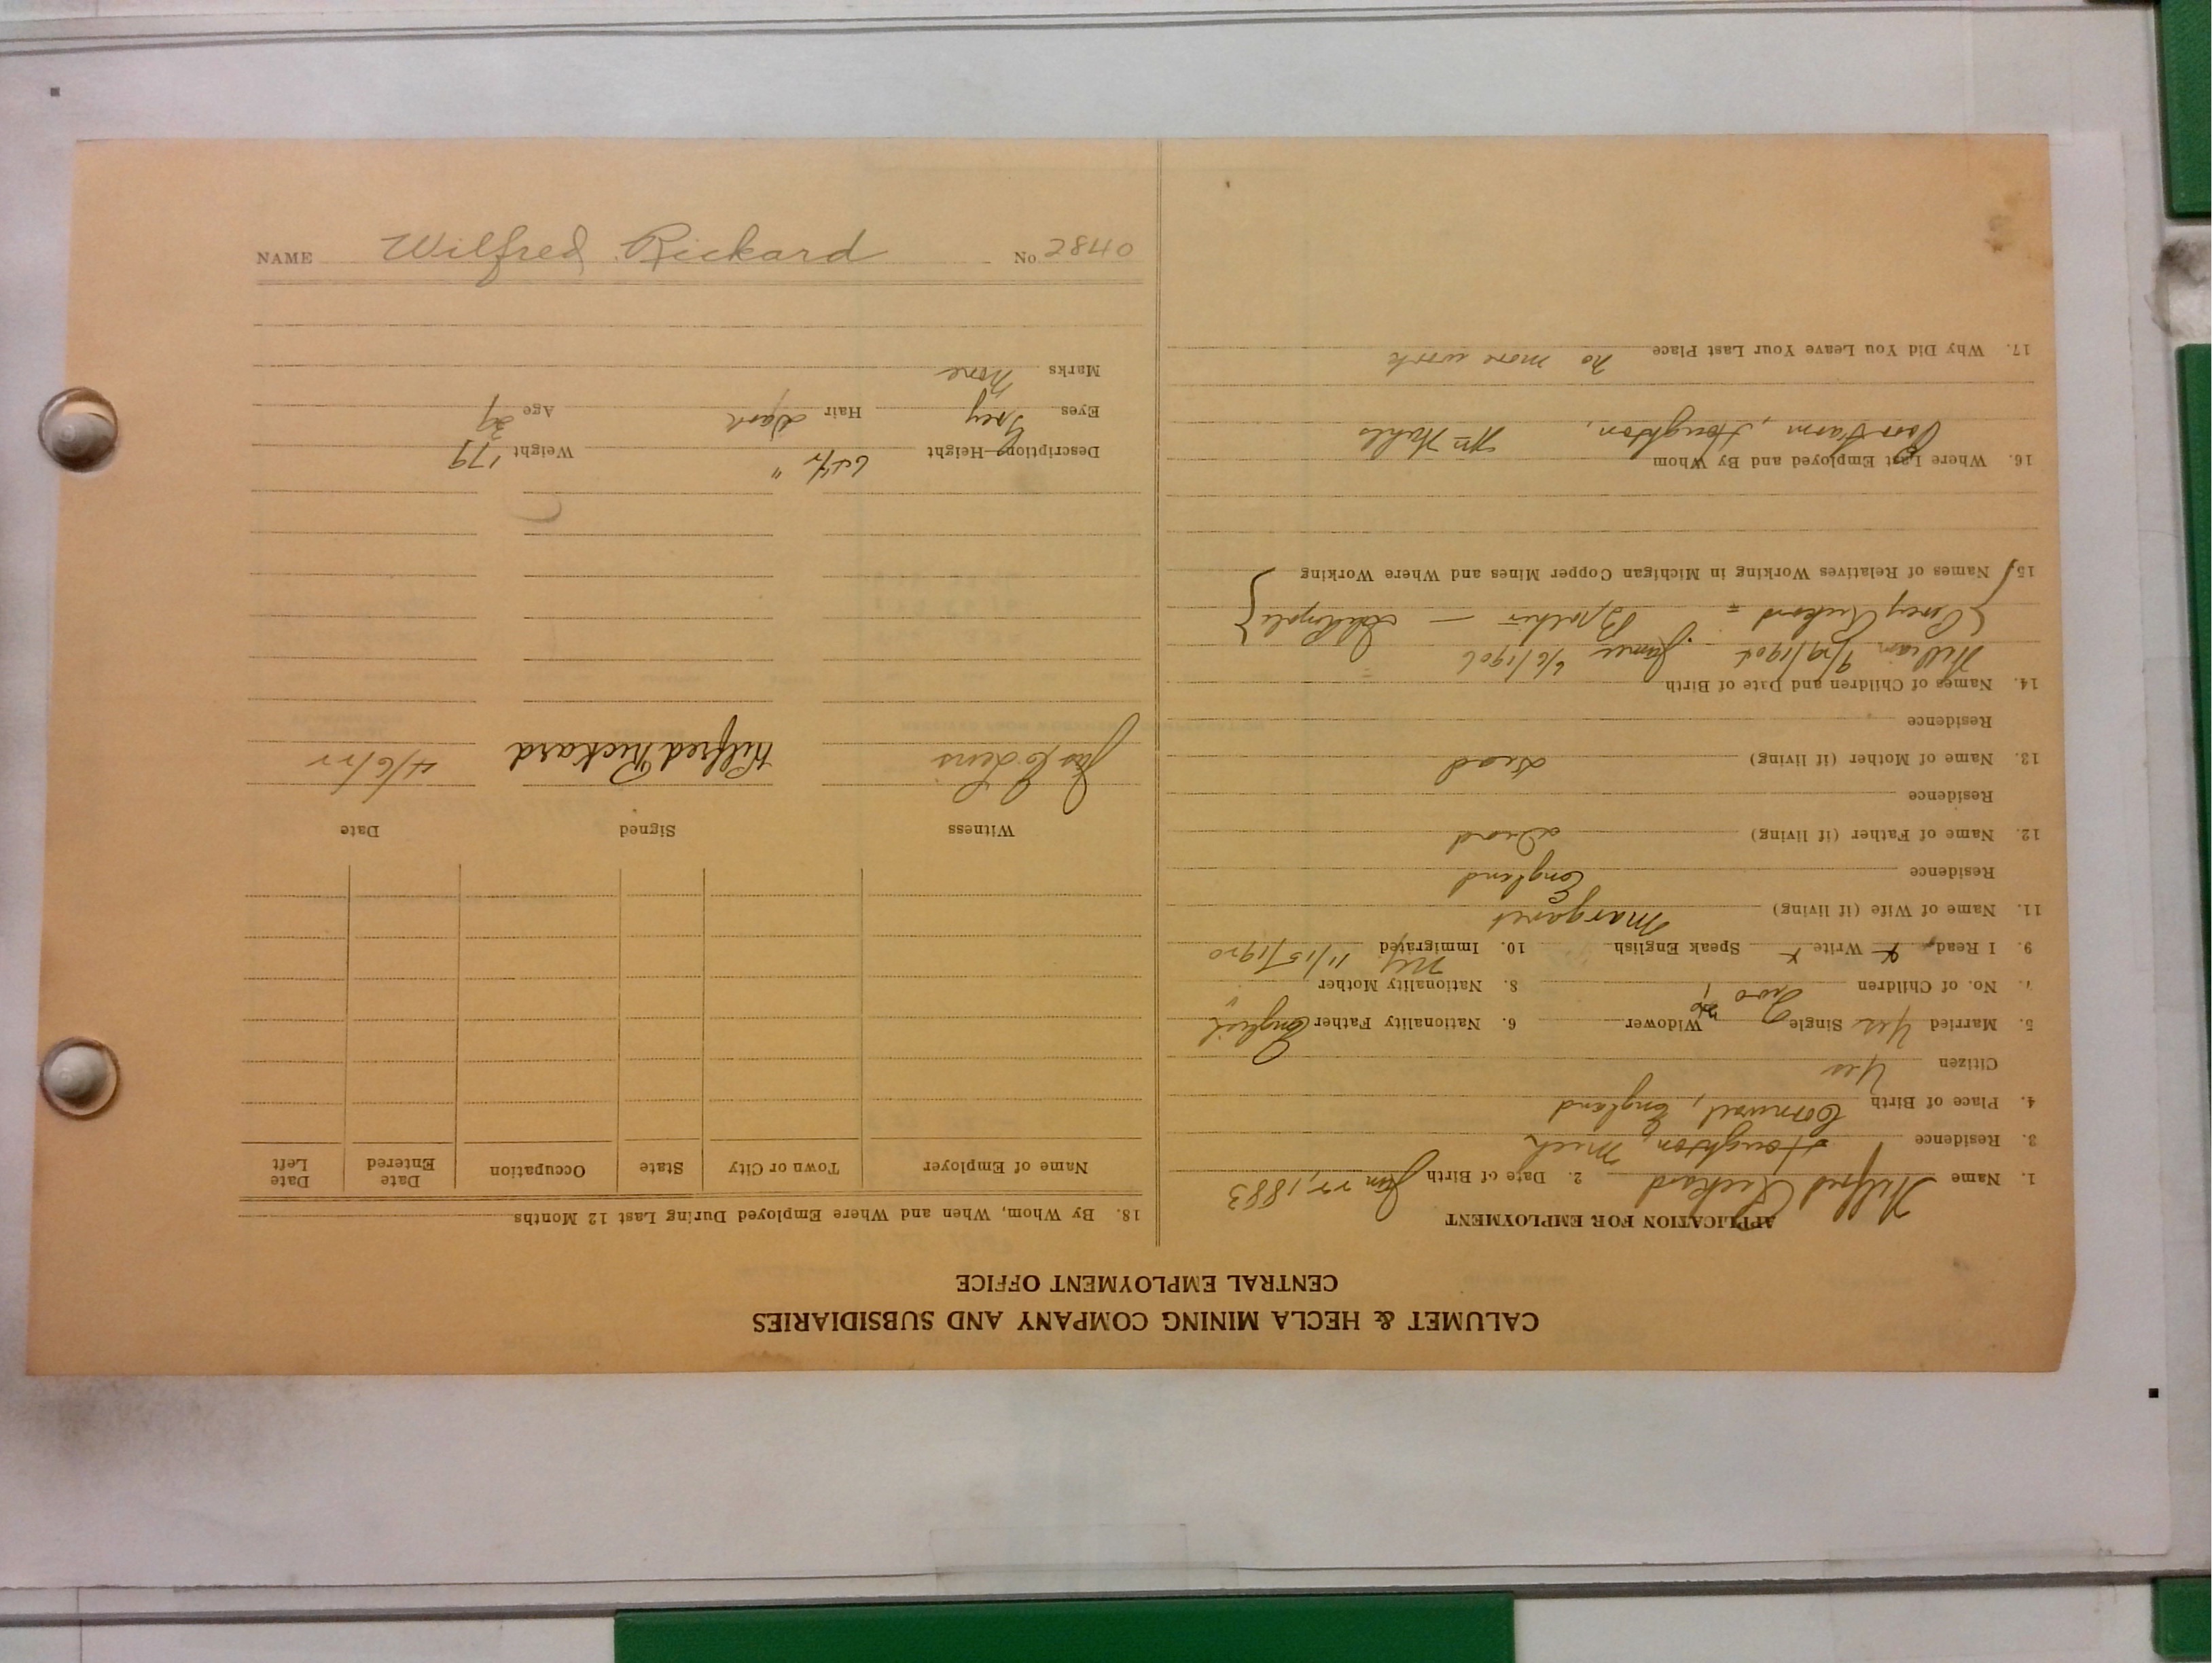 CALUMET & HECLA MINING COMPANY AND SUBSIDIARIES
CENTRAL EMPLOYMENT OFFICE
APPLICATION FOR EMPLOYMENT
1. Name Wilfred Rickard 2. Date of Birth Jan 22, 1883
3. Residence Houghton, Mich
4. Place of Birth Cornwall, England
Citizen Yes
5. Married Yes Single Widower 6. Nationality Father English
7. No. of Children Two 8. Nationality Mother "
9. I Read x Write x Speak English 10. Immigrated N.Y. 11/15/1920
11. Name of Wife (if living) Margaret
Residence England
12. Name of Father (if living) Dead
Residence
13. Name of Mother (if living) Dead
Residence
14. Names of Children and Date of Birth
William 9/29/1904 James 6/6/1906
{Percy Rickard = Brother — }
15. Names of Relatives Working in Michigan Copper Mines and Where Working
16. Where Last Employed and By Whom
Poor Farm, Houghton, Wm
17. Why Did You Leave Your Last Place no more work
18. By Whom, When and Where Employed During Last 12 Months
Name of Employer Town or City State Occupation Date Entered Date Left
Witness Signed Date
Jas Wilfred Rickard 4/6/22
Description—Height Weight 179
Eyes Grey Hair Dark Age 39
Marks None
NAME Wilfred Rickard No. 2840